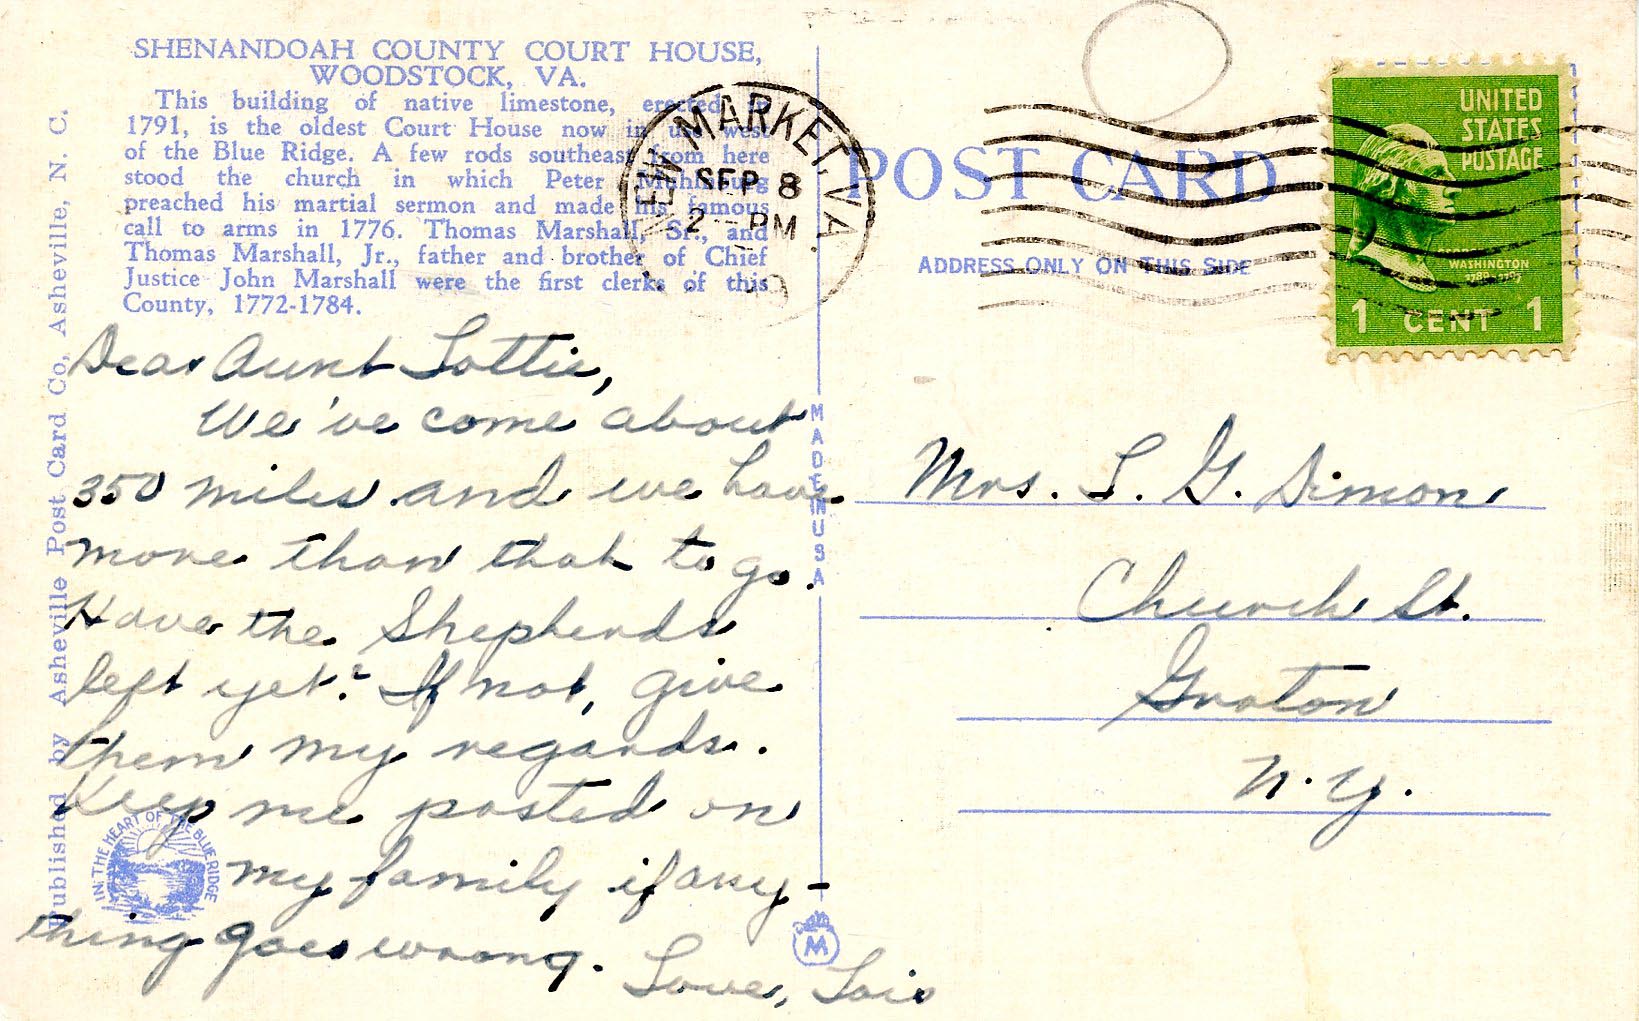 SHENANDOAH COUNTY COURT HOUSE,
WOODSTOCK, VA.
This building of native limestone, erected in
1791, is the oldest Court House now in use west
of the Blue Ridge. A few rods southeast from here
stood the church in which Peter Muhlenburg
preached his martial sermon and made his famous
call to arms in 1776. Thomas Marshall, Sr., and
Thomas Marshall, Jr., father and brother of Chief
Justice John Marshall were the first clerks of this
County, 1772-1784.
Published by Asheville Post Card Co, Asheville, N. C.
Dear Aunt Lottie,
We've come about
350 miles and we have
more than that to go.
Have the Shepherds
left yet? If not, give
them my regards.
Keep me posted on
my family if any-
thing goes wrong.
Love, Lois
IN THE HEART OF THE BLUE RIDGE
MADE IN USA
M
NEW MARKET, VA.
SEP 8
2 PM
POST CARD
ADDRESS ONLY ON THIS SIDE
UNITED
STATES
POSTAGE
WASHINGTON
1 CENT 1
Mrs. L. G. Simon
Church St.
Groton
N.Y.